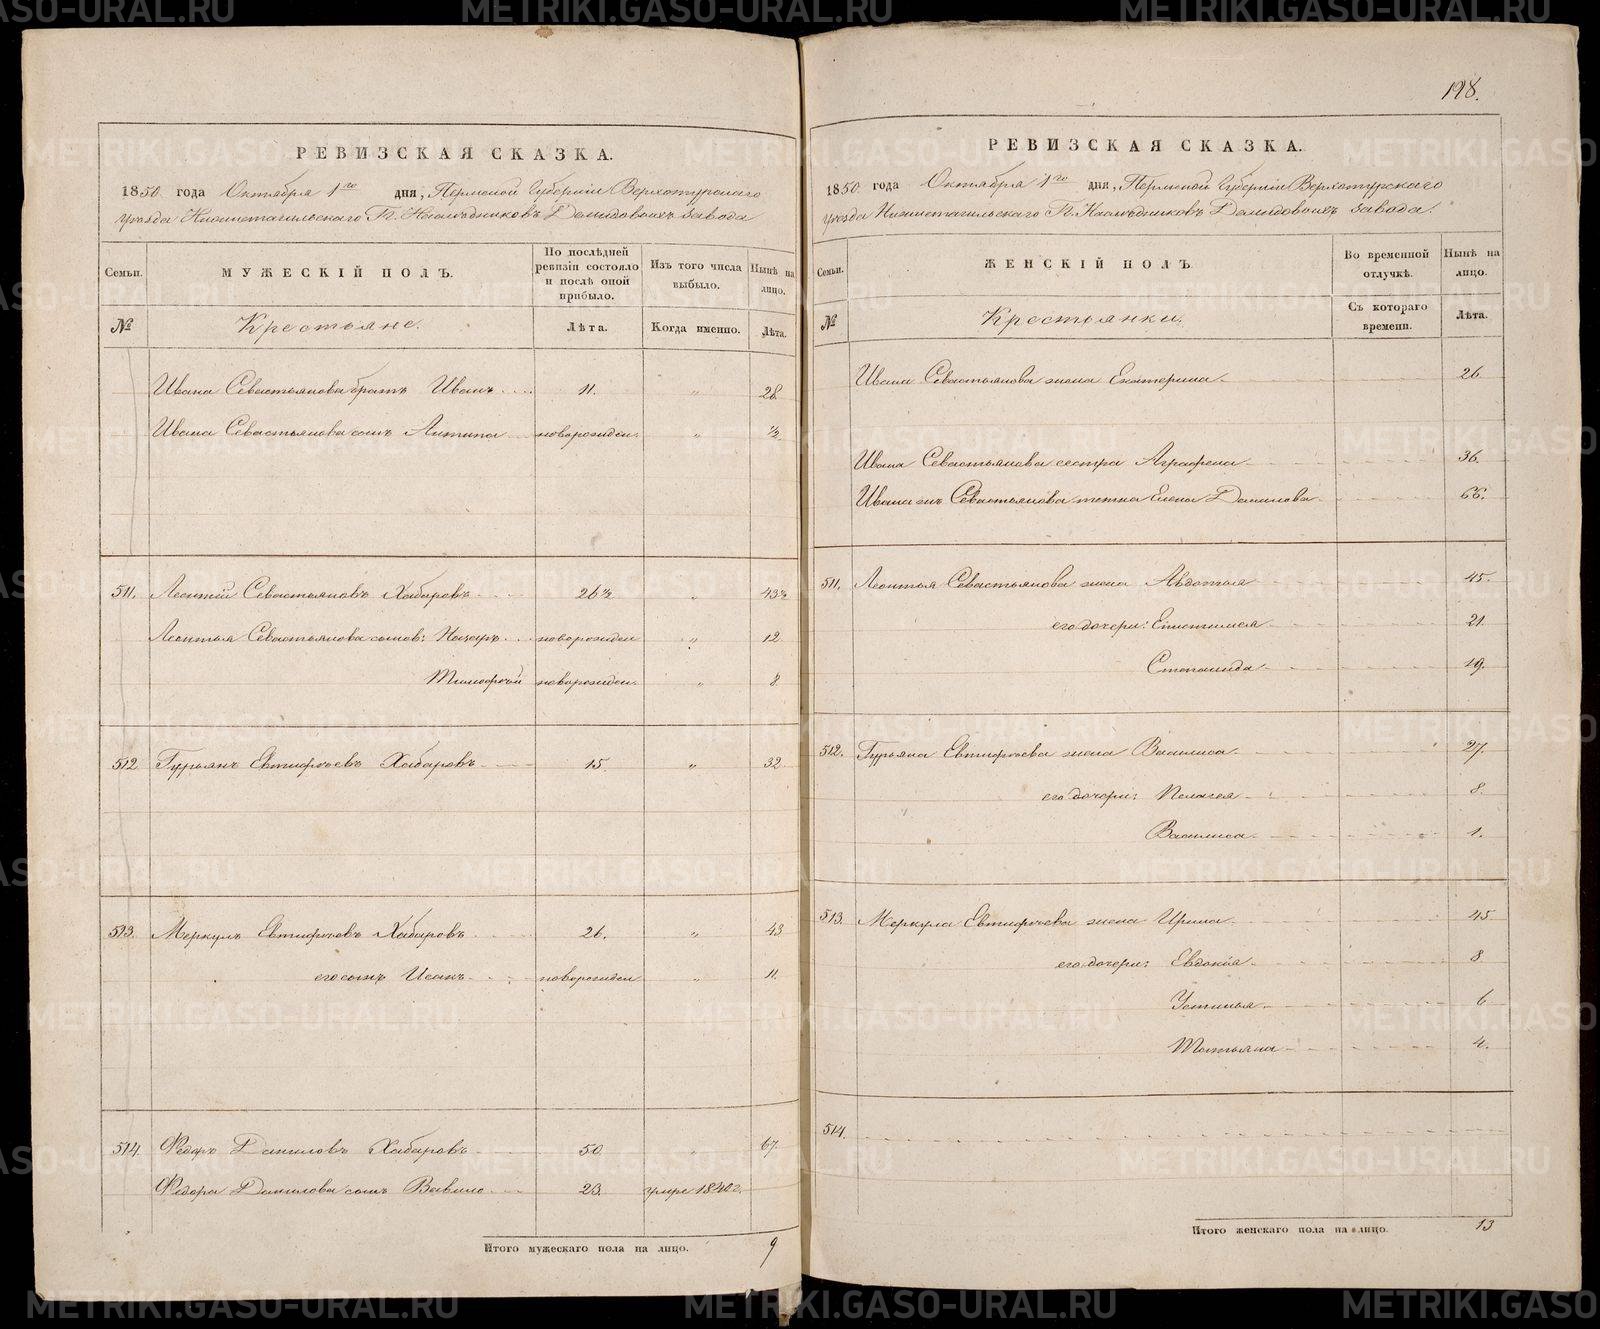 РЕВИЗСКАЯ СКАЗКА.
1850 года Октября 1го дня, Пермской Губерніи Верхотурскаго
уезда Нижнетагильскаго П. Наследниковъ Демидовыхъ завода
Семьи.
МУЖЕСКІЙ ПОЛЪ.
По послѣдней ревизіи состояло и послѣ оной прибыло.
Изъ того числа выбыло.
Нынѣ на лицо.
№
Крестьяне.
Лѣта.
Когда именно.
Лѣта.
Ивана Севастьянова братъ Иванъ 11. " 28.
Ивана Севастьянова сынъ Антипа новорожден: " ½
511. Леонтій Севастьяновъ Хабаровъ 26½ " 43½
Леонтья Севастьянова сынов: Назаръ новорожден " 12
Тимофѣй новорожден. " 8
512 Гурьянъ Евтифѣевъ Хабаровъ 15. " 32.
513. Меркулъ Евтифѣевъ Хабаровъ 26. " 43
его сынъ Исакъ новорожден " 11.
514. Федоръ Даниловъ Хабаровъ 50. " 67.
Федора Данилова сынъ Вавило 23. умре 1840 г.
Итого мужескаго пола на лицо. 9
198.
РЕВИЗСКАЯ СКАЗКА.
1850 года Октября 1го дня, Пермской Губерніи Верхотурскаго
уезда Нижнетагильскаго П. Наследниковъ Демидовыхъ завода.
Семьи.
ЖЕНСКІЙ ПОЛЪ.
Во временной отлучкѣ.
Нынѣ на лицо.
№
Крестьянки.
Съ котораго времени.
Лѣта.
Ивана Севастьянова жена Екатерина 26
Ивана Севастьянова сестра Аграфена 36.
Севастьянова тетка Елена Данилова 66.
511. Леонтья Севастьянова жена Авдотья 45.
его дочери: Епистимея 21
Степанида 19.
512. Гурьяна Евтифѣева жена Василиса 27
его дочери: Пелагея 8.
Василиса 1.
513. Меркула Евтифѣева жена Ирина 45
его дочери: Евдокія 8
Устинья 6
Татьяна 4.
514.
Итого женскаго пола на лицо. 13
METRIKI.GASO-URAL.RU